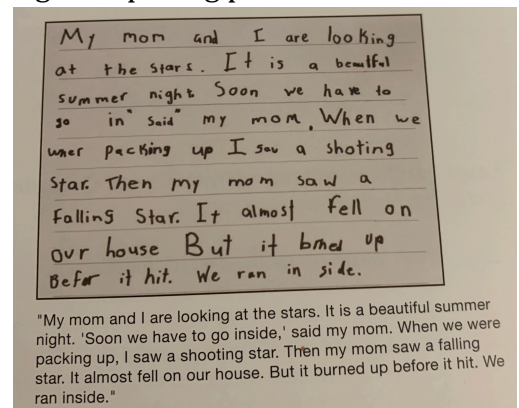 My mom and I are looking
at the stars. It is a beautful
summer night Soon we have to
go in" said" my mom. When we
wher packing up I saw a shoting
Star. Then my mom saw a
falling Star. It almost fell on
our house But it brned up
Befor it hit. We ran in side.
"My mom and I are looking at the stars. It is a beautiful summer
night. 'Soon we have to go inside,' said my mom. When we were
packing up, I saw a shooting star. Then my mom saw a falling
star. It almost fell on our house. But it burned up before it hit. We
ran inside."